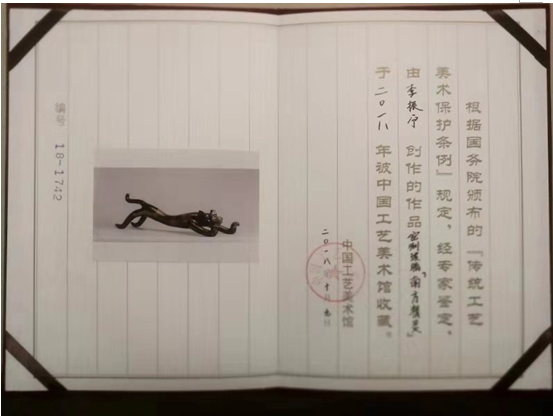 根据国务院颁布的『传统工艺
美术保护条例』规定，经专家鉴定。
由 李振宁 创作的作品
于 二〇一八 年被中国工艺美术馆收藏。
中国工艺美术馆
二〇一八年十月九日
编号 18-1742